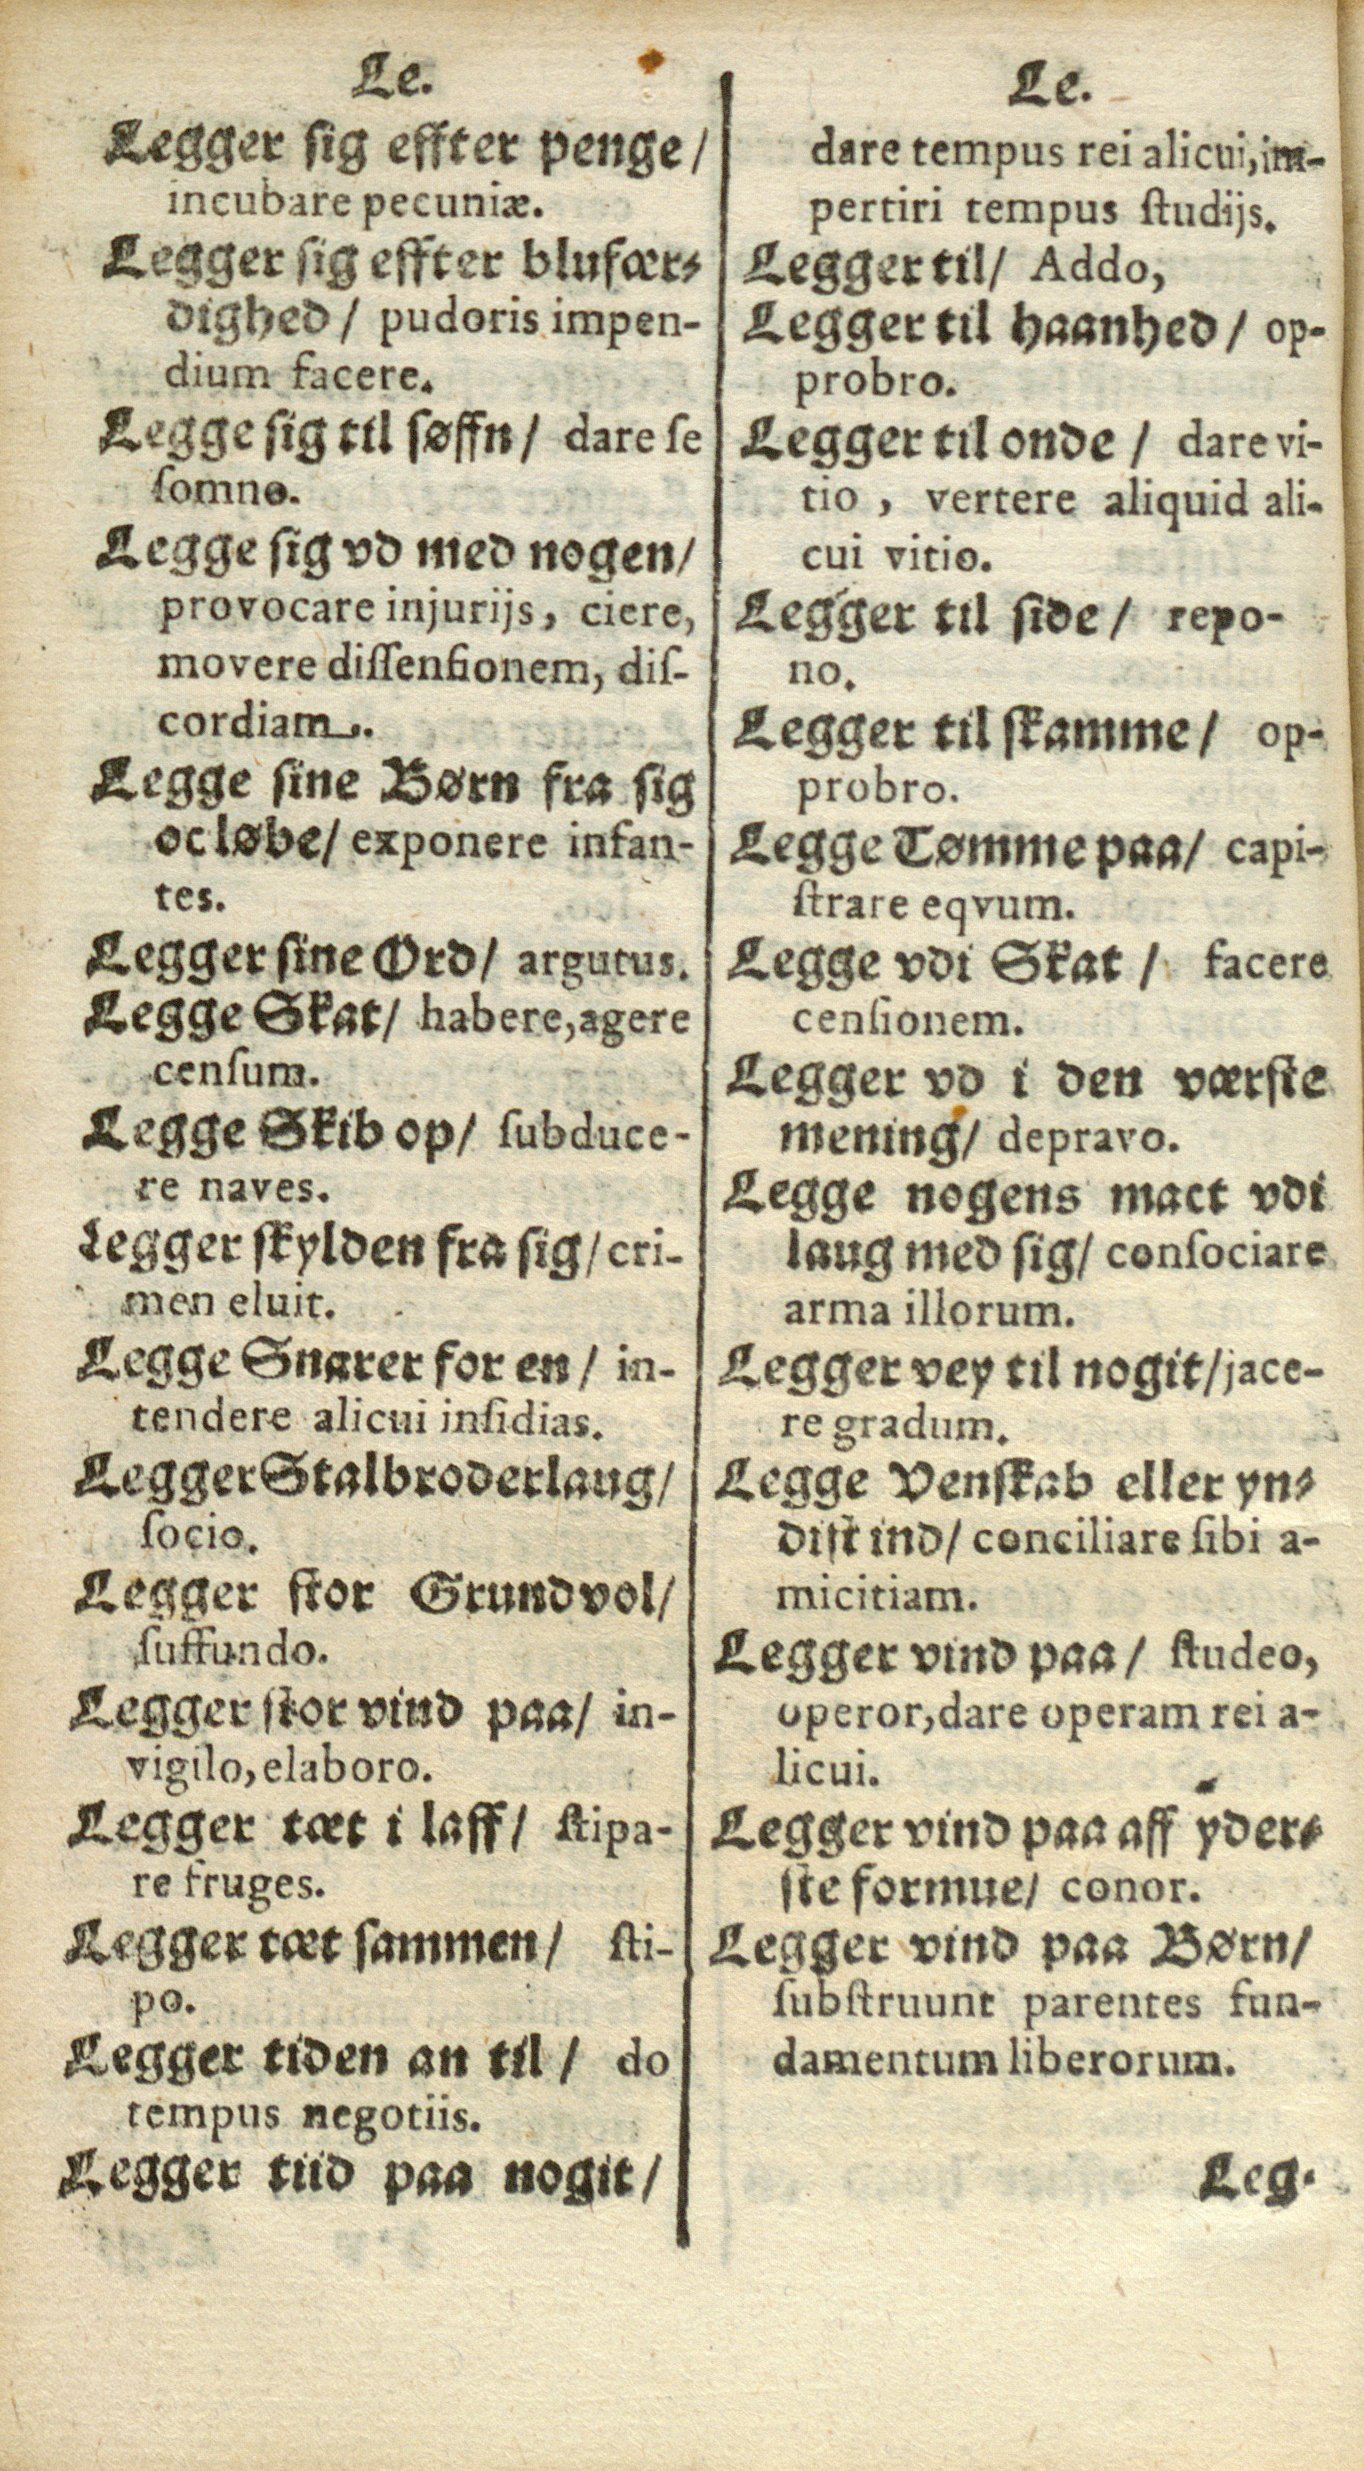 Le.
Legger sig effter penge/
incubare pecuniæ.
Legger sig effter blufær-
dighed / pudoris impen-
dium facere.
Legge sig til søffn/ dare ſe
ſomno.
Legge sig vd med nogen/
provocare injurijs, ciere,
movere diſſenſionem, diſ-
cordiam.
Legge sine Børn fra sig
oc løbe/ exponere infan-
tes.
Legger sine Ord/ argutus.
Legge Skat/ habere, agere
cenſum.
Legge Skib op/ ſubduce-
re naves.
Legger skylden fra sig/ cri-
men eluit.
Legge Snarer for en/ in-
tendere alicui inſidias.
Legger Stalbroderlaug/
ſocio.
Legger stor Grundvol/
ſuffundo.
Legger stor vind paa/ in-
vigilo, elaboro.
Legger tæt i laff/ ſtipa-
re fruges.
Legger tæt sammen/ ſti-
po.
Legger tiden an til / do
tempus negotiis.
Legger tiid paa nogit/
Le.
dare tempus rei alicui, im-
pertiri tempus ſtudijs.
Legger til/ Addo,
Legger til haanhed/ op-
probro.
Legger til onde / dare vi-
tio, vertere aliquid ali-
cui vitio.
Legger til side/ repo-
no.
Legger til skamme/ op-
probro.
Legge Tømme paa/ capi-
ſtrare eqvum.
Legge vdi Skat / facere
cenſionem.
Legger vd i den værste
mening/ depravo.
Legge nogens mact vdi
laug med sig/ conſociare
arma illorum.
Legger vey til nogit/ jace-
re gradum.
Legge Venskab eller yn-
dist ind/ conciliare ſibi a-
micitiam.
Legger vind paa/ ſtudeo,
operor, dare operam rei a-
licui.
Legger vind paa aff yder-
ste formue/ conor.
Legger vind paa Børn/
ſubſtruunt parentes fun-
damentum liberorum.
Leg-